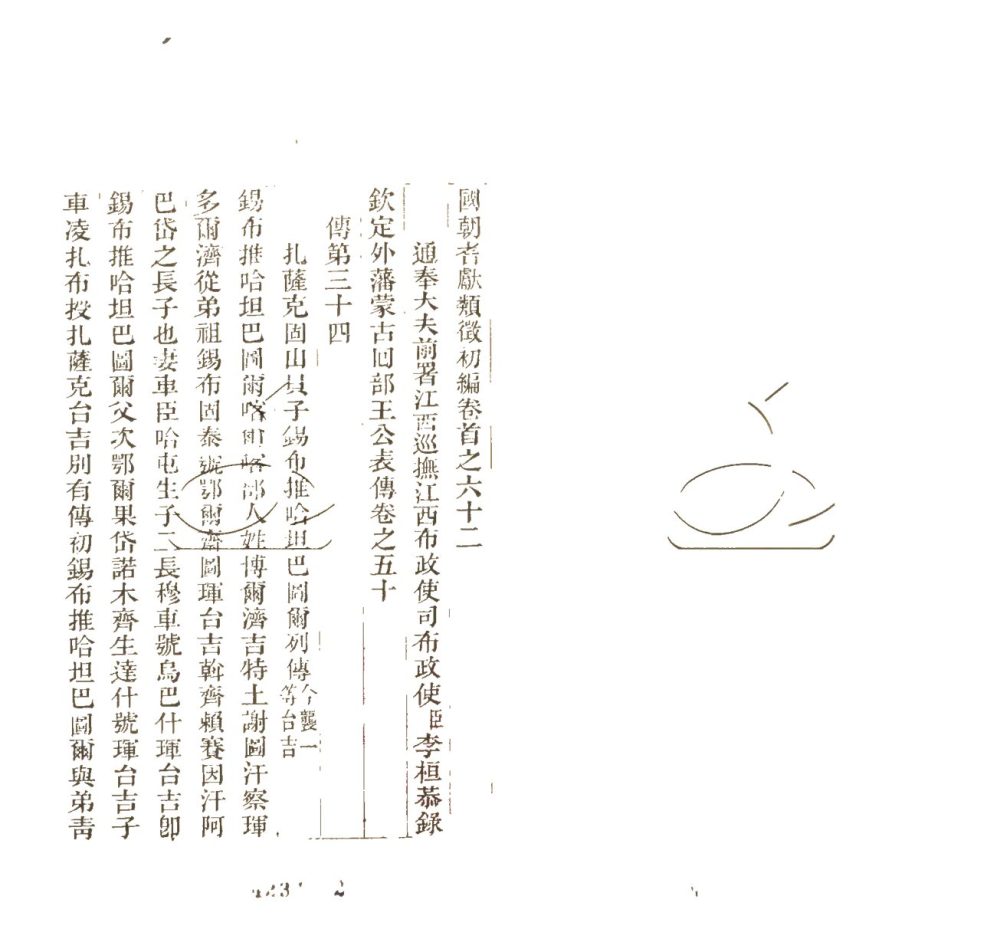 國朝耆獻類徵初編卷首之六十二
通奉大夫前署江西巡撫江西布政使司布政使臣李桓恭錄
欽定外藩蒙古回部王公表傳卷之五十
傳第三十四
扎薩克固山貝子錫布推哈坦巴圖爾列傳今襲一等台吉
錫布推哈坦巴圖爾喀爾喀部人姓博爾濟吉特土謝圖汗察琿
多爾濟從弟祖錫布固泰號鄂爾齋圖琿台吉斡齊賴賽因汗阿
巴岱之長子也妻車臣哈屯生子二長穆車號烏巴什琿台吉卽
錫布推哈坦巴圖爾父次鄂爾果岱諾木齊生達什號琿台吉子
車凌扎布授扎薩克台吉別有傳初錫布推哈坦巴圖爾與弟靑
2